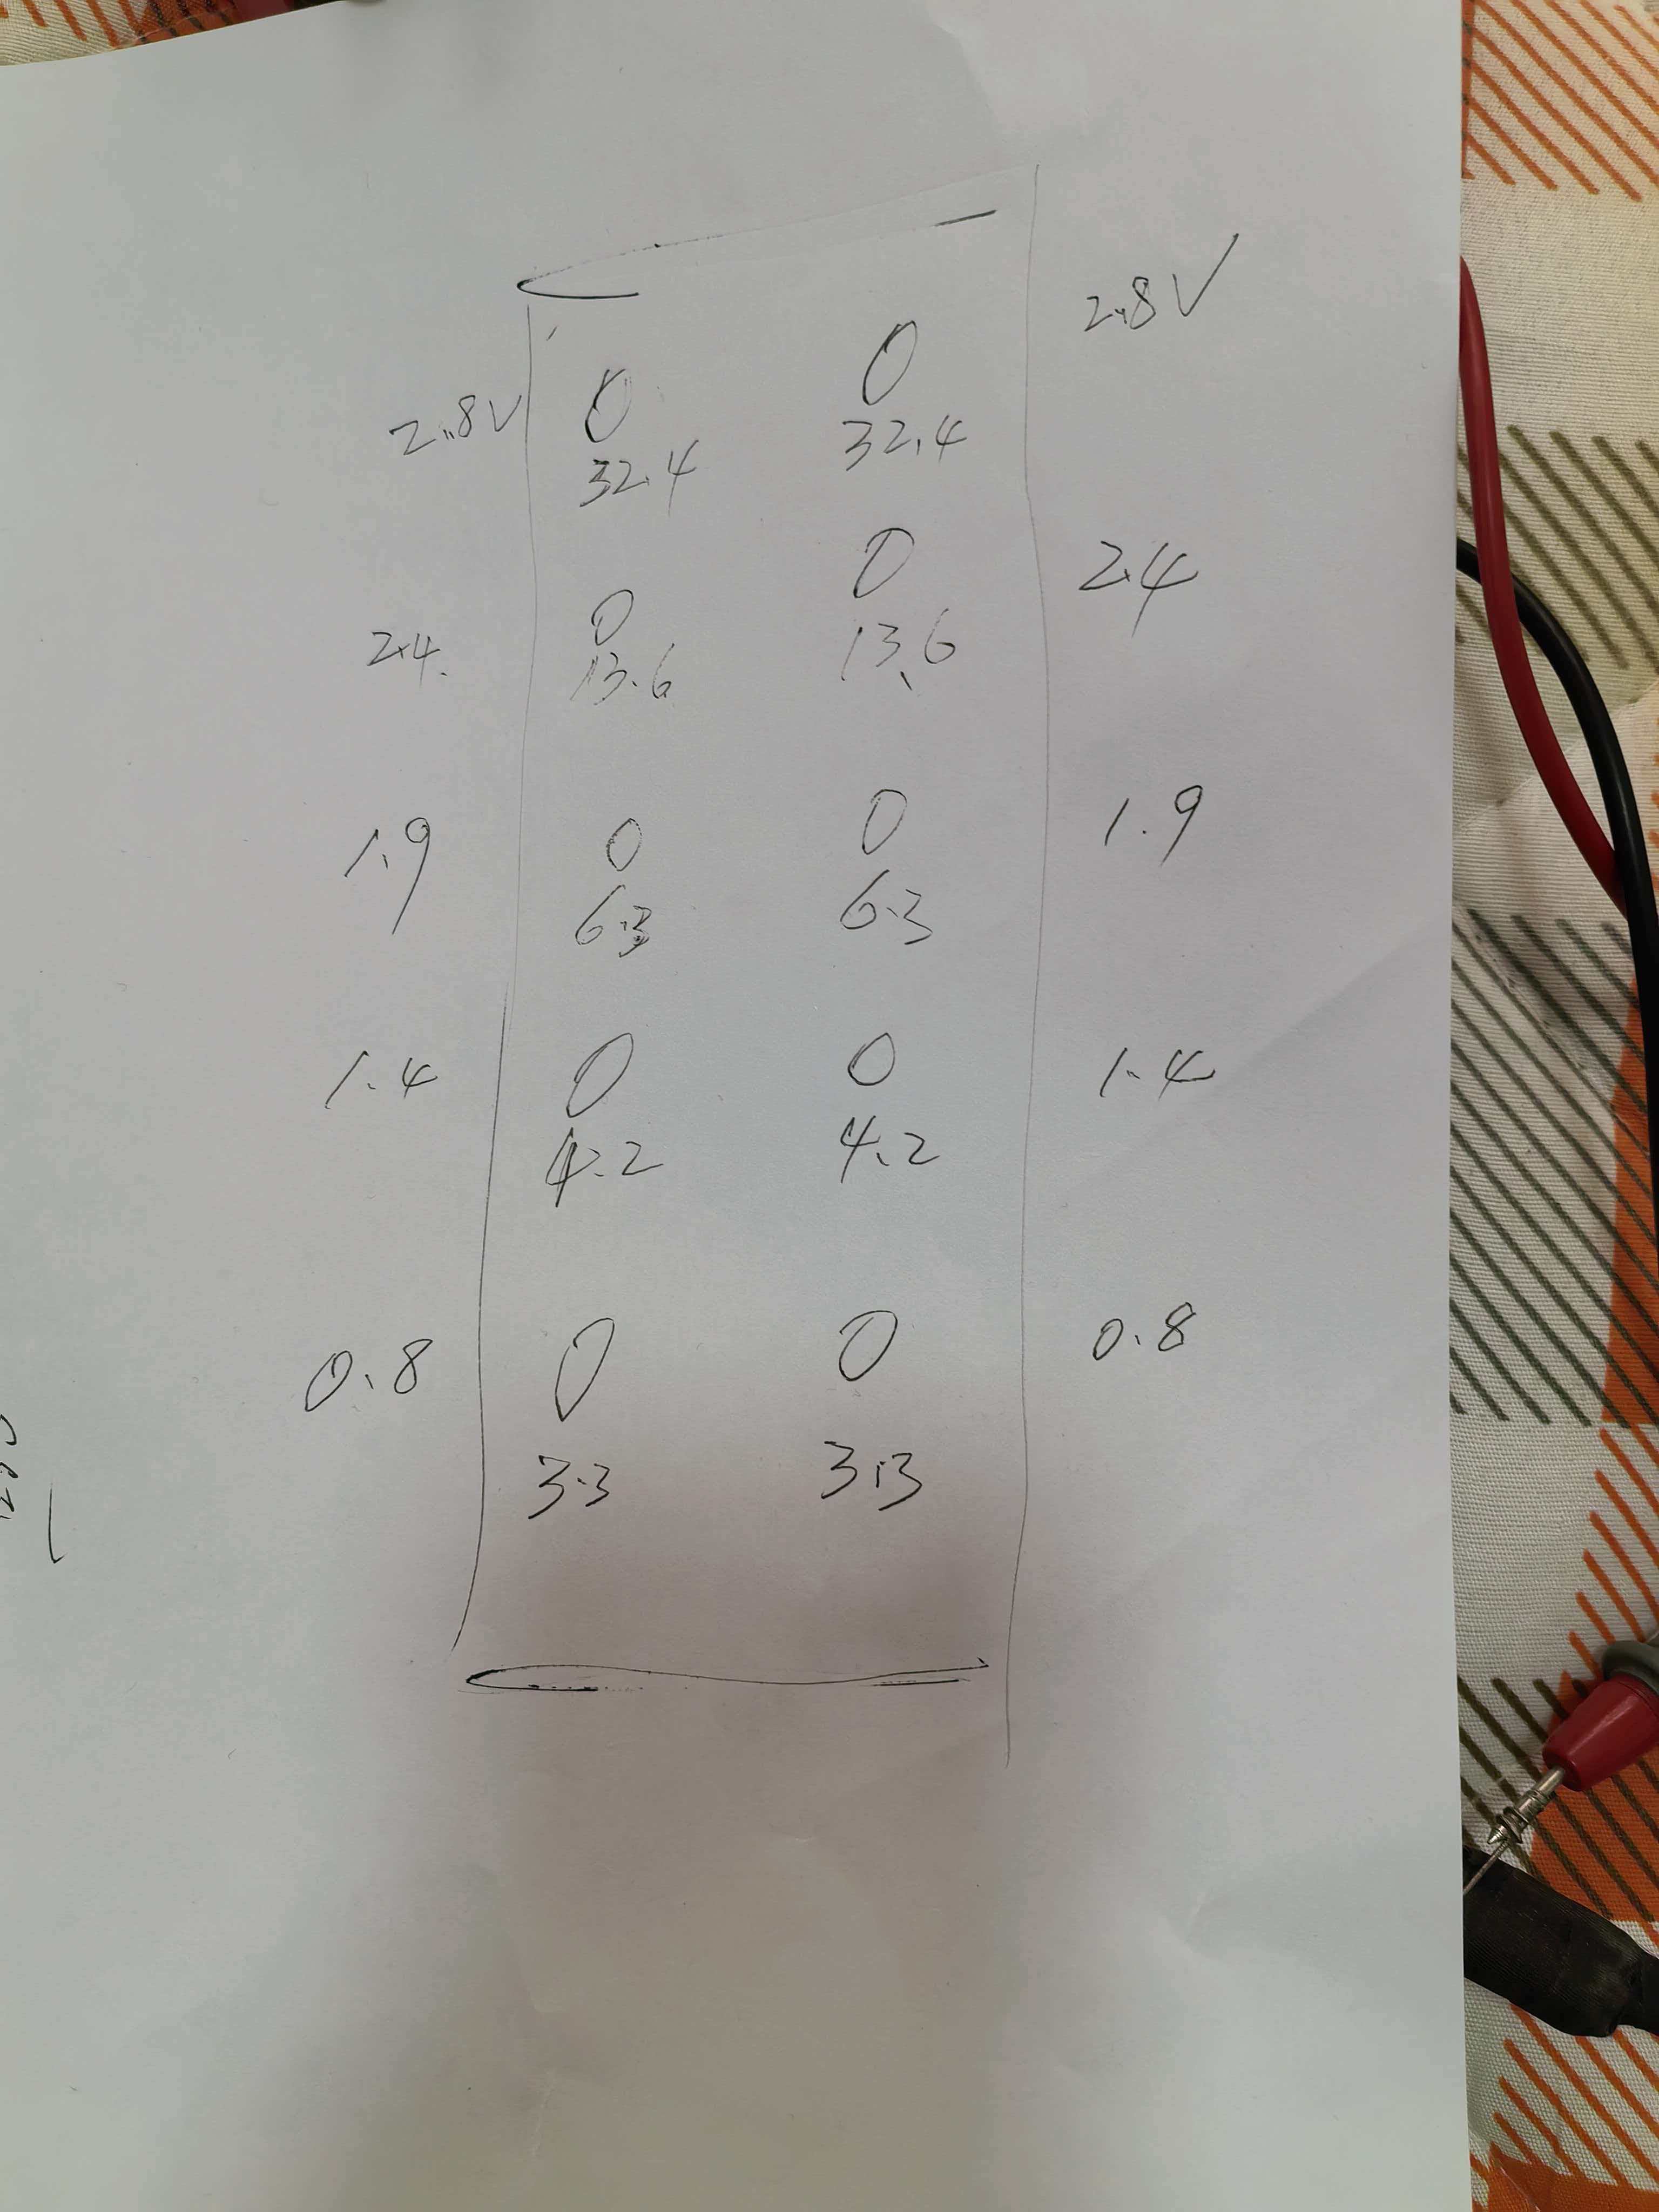 2.8V 0 0 2.8V
32.4 32.4
2.4. 0 0 2.4
13.6 13.6
1.9 0 0 1.9
6.3 6.3
1.4 0 0 1.4
4.2 4.2
0.8 0 0 0.8
3.3 3.3